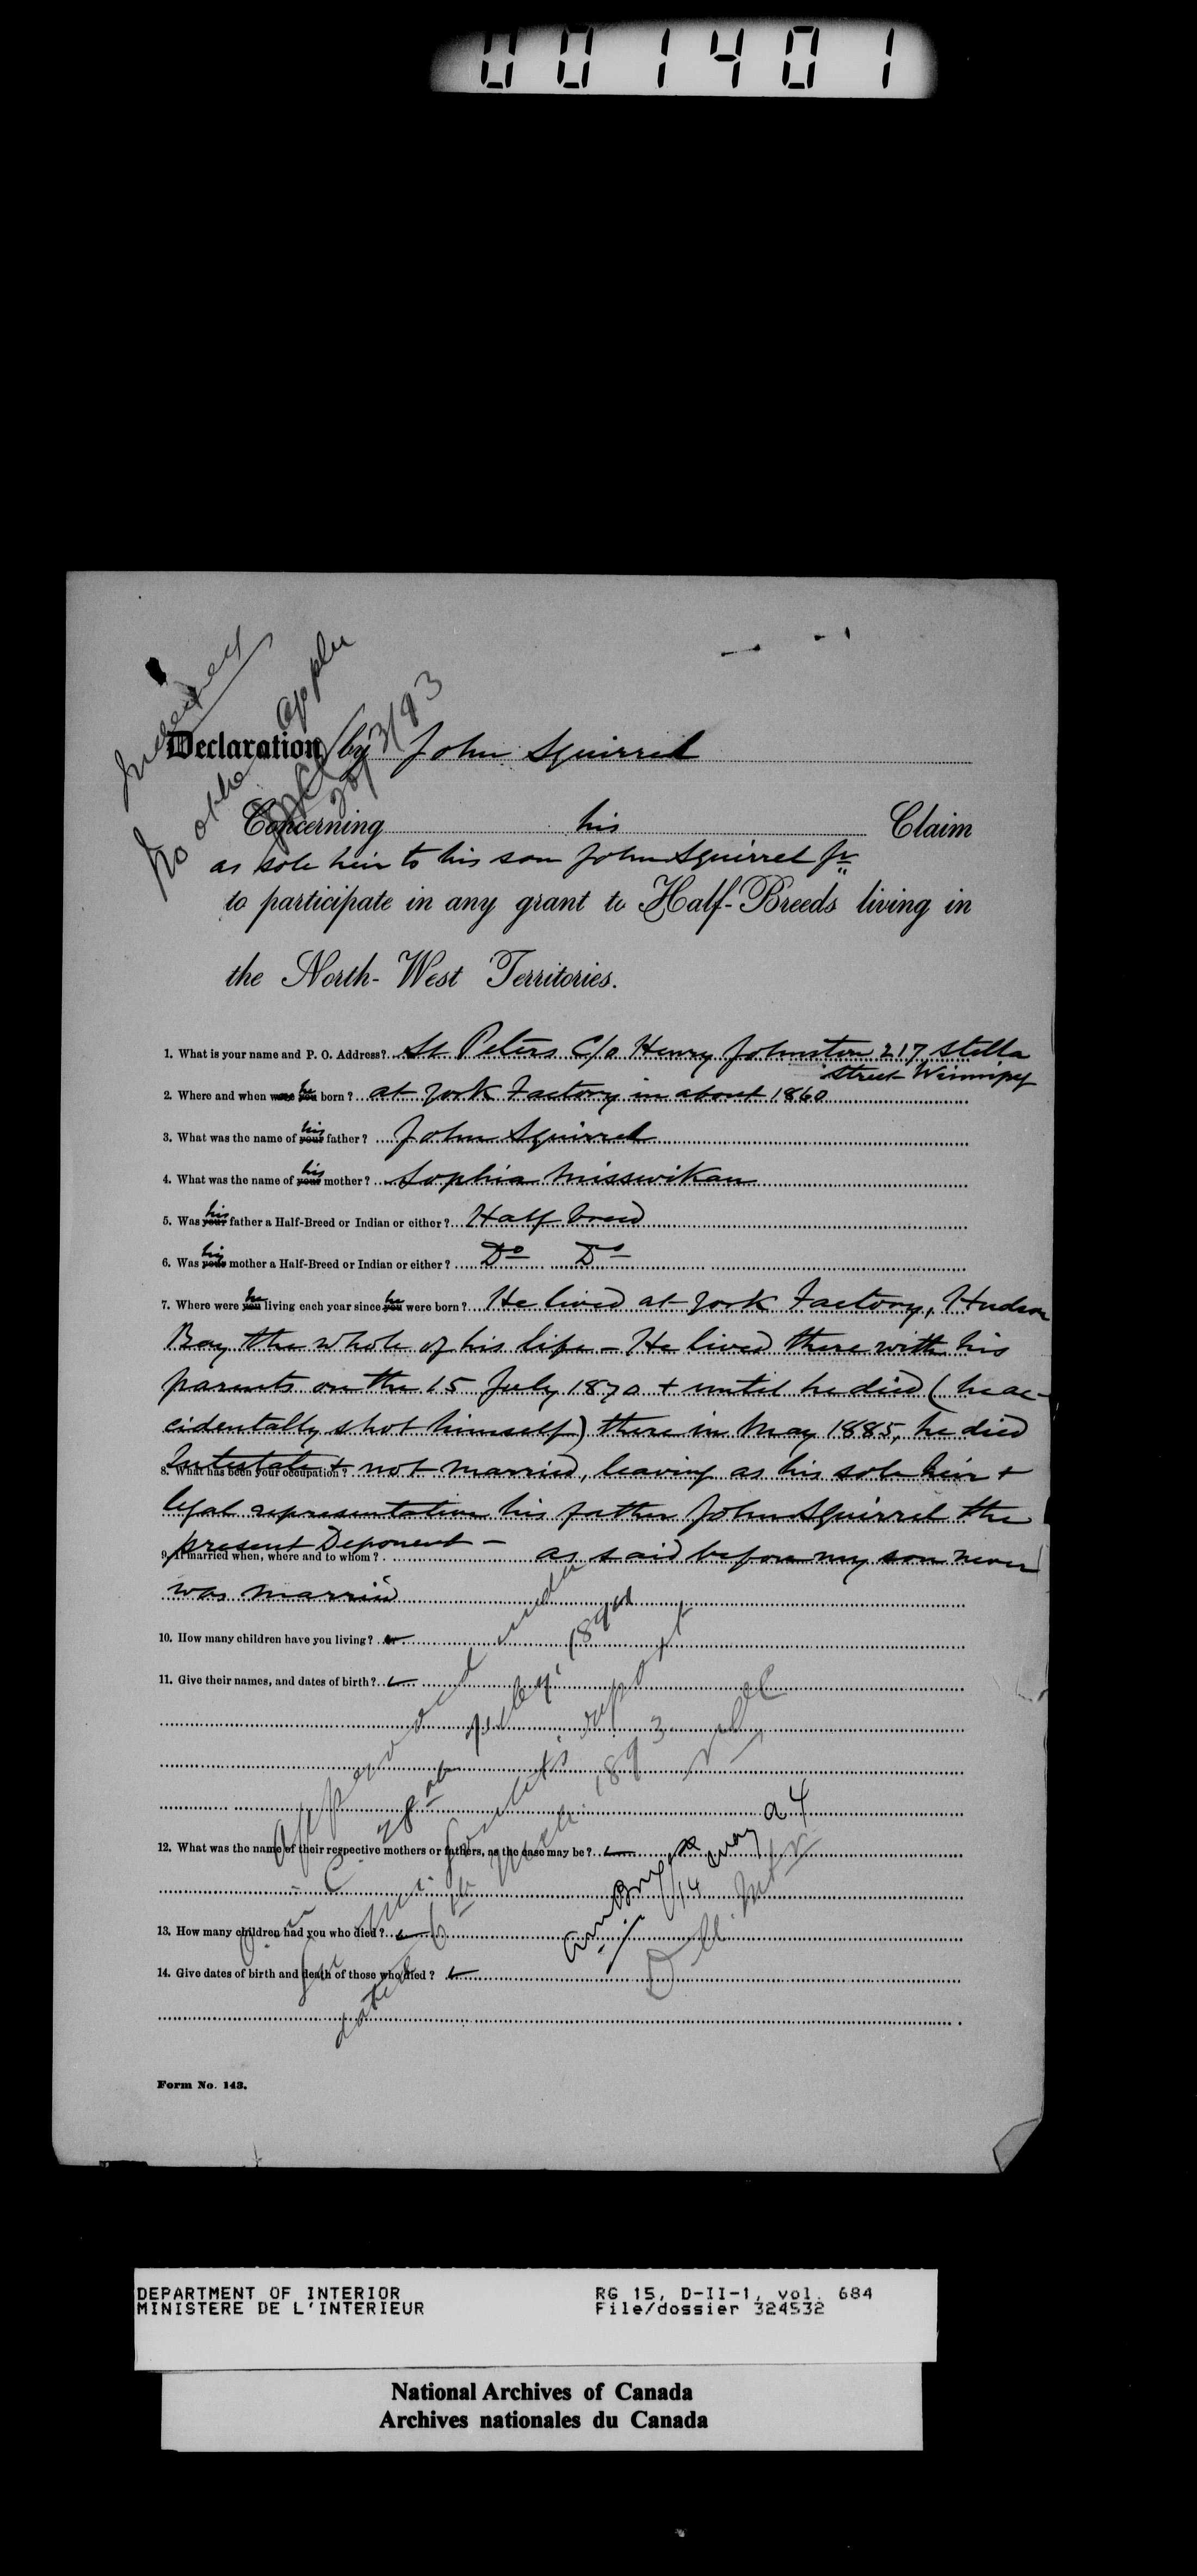 001401
No other applen
20/3/93
Declaration by John Squirrel
Concerning his Claim
as sole heir to his son John Squirrel Jr
to participate in any grant to Half-Breeds living in
the North-West Territories.
1. What is your name and P. O. Address? St Peters C/o Henry Johnston 217 Stella
Street Winnipeg
2. Where and when was you he born? at York Factory in about 1860
3. What was the name of your his father? John Squirrel
4. What was the name of your his mother? Sophia Misswikan
5. Was your his father a Half-Breed or Indian or either? Half breed
6. Was your his mother a Half-Breed or Indian or either? Do Do
7. Where were you he living each year since you he were born? He lived at York Factory, Hudson
Bay the whole of his life - He lived there with his
parents on the 15 July 1870 + until he died (he ac-
cidentally shot himself) there in May 1885, he died
Intestate + not married, leaving as his sole heir +
8. What has been your occupation?
legal representative his father John Squirrel the
present Deponent -
9. If married when, where and to whom? as said before my son never
was married
10. How many children have you living?
11. Give their names, and dates of birth?
12. What was the name of their respective mothers or fathers, as the case may be?
13. How many children had you who died?
14. Give dates of birth and death of those who died?
Approved under
O. in C. 28th July 1891
report
dated 6th March 1893
14 May 94
Form No. 143.
DEPARTMENT OF INTERIOR
MINISTERE DE L'INTERIEUR
RG 15, D-II-1, vol. 684
File/dossier 324532
National Archives of Canada
Archives nationales du Canada